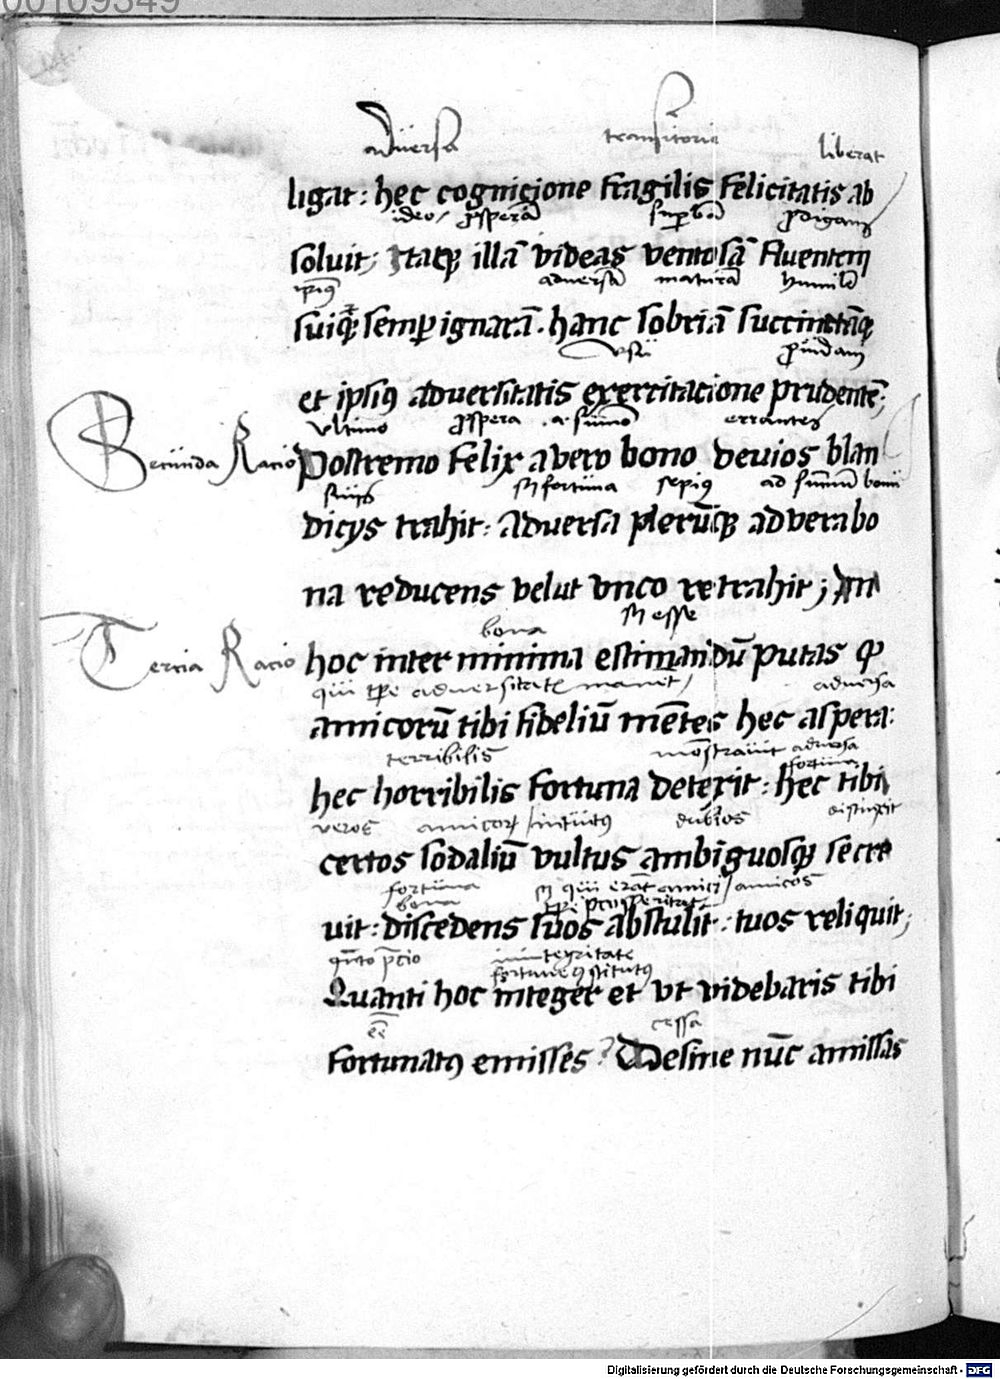 00109349
adüersa transitorie liberat
ligat: hec cognicione fragilis felicitatis ab
ideo / ꝓsperā suꝑbā ꝓdigam
soluit; Itaqꝫ illā videas ventosā fluentem
ipiꝰ aduersā maturā humilē
suiqꝫ semꝑ ignarā. hanc sobriā succinctāqꝫ
vsu ꝓuidam
et ipsiꝰ aduersitatis exercitacione prudentē;
vltimo ꝓspera .a. sūmo errantes
Secūnda Racio Postremo felix a vero bono deuios blan
suis sꝫ fortūna sepiꝰ ad sūmū bonū
dicÿs trahit: Aduersa plerūqꝫ ad vera bo
na reducens velut vnco retrahit; An
bona sꝫ esse
Tercia Racio hoc inter minima estimandū putas ꝙ
qui tꝑe aduersitatꝭ manet / aduersa
amicorū tibi fideliū mētes hec aspera:
terribilis mōstrauit aduersa
fortūna
hec horribilis fortuna detexit: hec tibi
veros amicoꝝ / intūitꝰ dubios distinxit
certos sodaliū vultus ambiguosqꝫ secre
fortūna sꝫ qui erāt amici / amicos
bona tꝑe prosperitatꝭ
uit: discedens suos abstulit: tuos reliquit;
quāto p̄cio integritate
fortune ꝯstitutꝰ
Quanti hoc integer et vt videbaris tibi
cessa
fortunatꝰ emisses? Desine nūc amissas
Digitalisierung gefördert durch die Deutsche Forschungsgemeinschaft - DFG